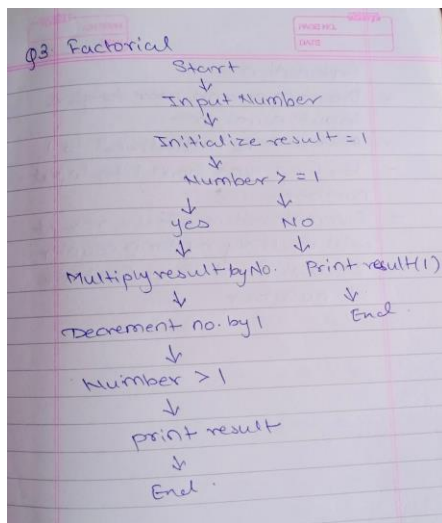 Q3. Factorial
Start
↓
Input Number
↓
Initialize result = 1
↓
Number > = 1
↓ ↓
yes No
↓ ↓
Multiply result by No. Print result(1)
↓ ↓
Decrement no. by 1 End.
↓
Number > 1
↓
print result
↓
End.